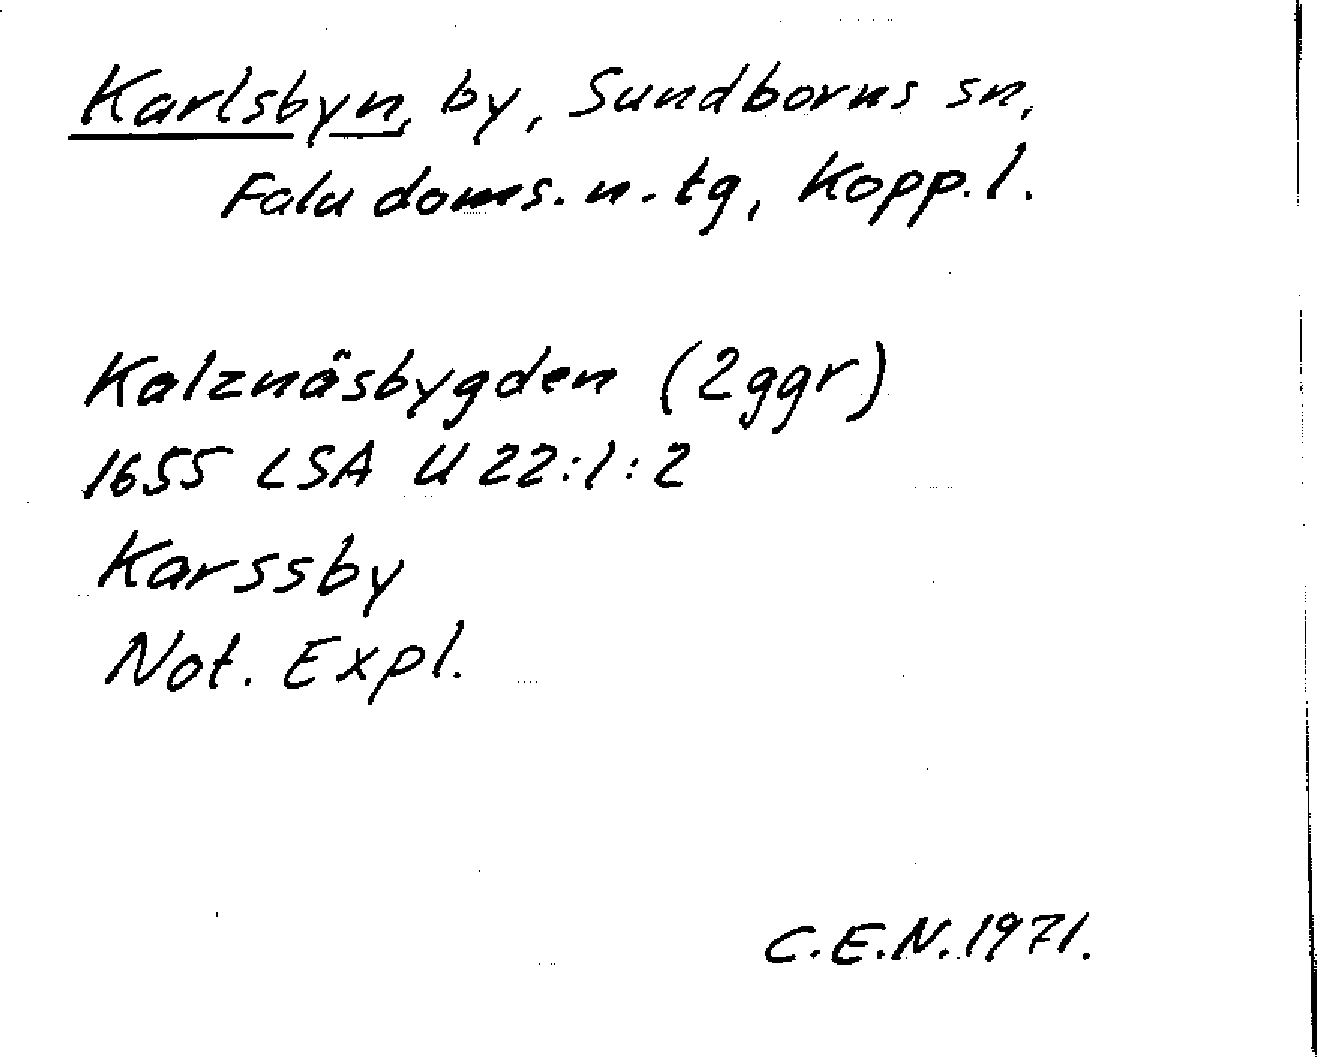 Karlsbyn, by, Sundborns sn,
Falu doms. n. tg, Kopp. l.
Kalznäsbygden (2ggr)
1655 LSA U 22:1:2
Karssby
Not. Expl.
C.E.N. 1971.